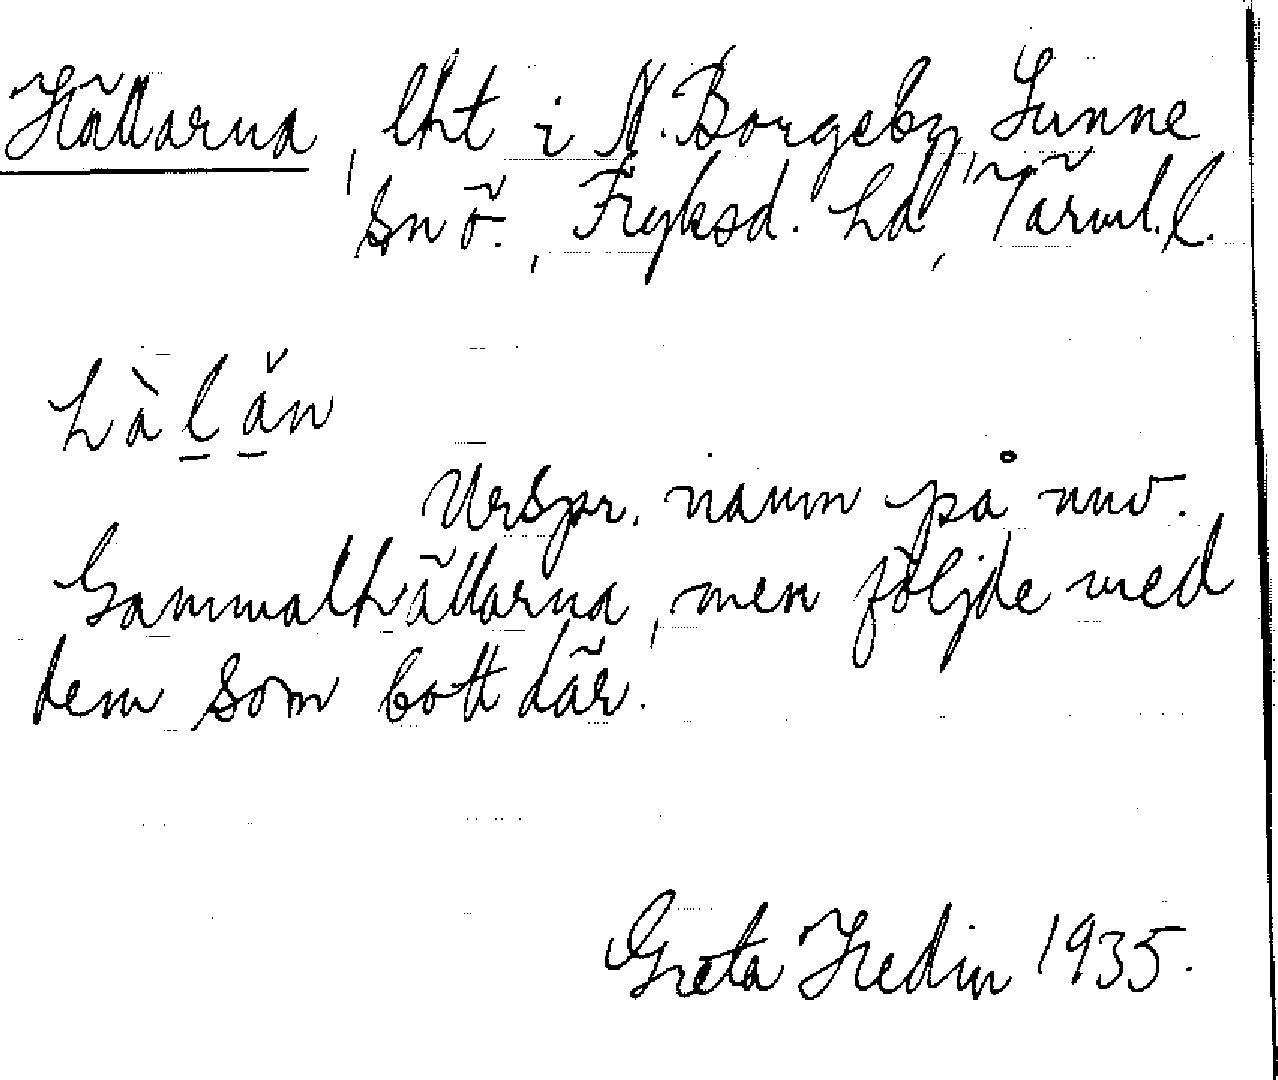 Hällarna, lht i N. Borgeby, Sunne
snö., Fryksd. hd, Värml. l.
hàlån
Urspr. namn på nuv.
Gammalhällarna, men följde med
dem som bott där.
Greta Hedin 1935.